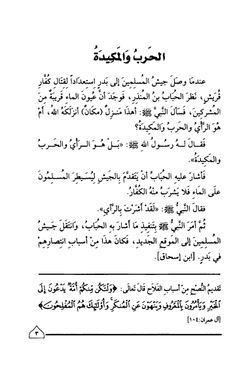 الحَربُ وَالمَكِيدَةُ
عندمَا وصلَ جيشُ المُسلمِينَ إلى بدرٍ استِعدَاداً لقِتَالِ كُفَّارِ
قُرَيشٍ، نَظَرَ الحُبَابُ بنُ المُنذِرِ، فَوجَدَ أنَّ عُيُونَ الماءِ قَرِيبَةٌ مِنَ
المُشركينَ، فَسألَ النَّبيَّ ﷺ: أهذَا مَنزِلٌ (مكَانٌ) أنزَلَكَهُ اللهُ، أم
هوَ الرَّأيُ والحَربُ وَالمَكِيدَةُ؟
فَقَـالَ لـهُ رسُـولُ اللهِ ﷺ: «بَـلْ هُـوَ الـرَّأيُ والحَـربُ
وَالمَكِيدَةُ».
فَأشَارَ عليهِ الحُبَابُ أنْ يتَقَدَّمَ بِالجَيشِ لِيُسَيطِرَ المُسلمُونَ
علَى المَاءِ فَلَا يشرَبُ منْهُ الكُفَّارُ.
فقالَ النَّبيُّ ﷺ: «لَقَدْ أَشَرْتَ بِالرَّأيِ».
ثُمَّ أمَرَ النَّبيُّ ﷺ بِتَنفِيذِ مَا أشَارَ بهِ الحُبَابُ، وَانتَقَلَ جَيشُ
المُسلِمينَ إلى المَوقِعِ الجَدِيدِ، فَكَانَ هذَا مِنْ أسبَابِ انتِصَارِهِم
في بَدرٍ. [ابن إسحاق].
تقديمُ النُّصحِ مِنْ أسبَابِ الفَلَاحِ قَالَ تعَالَى: ﴿وَلْتَكُن مِّنكُمْ أُمَّةٌ يَدْعُونَ إِلَى
الْخَيْرِ وَيَأْمُرُونَ بِالْمَعْرُوفِ وَيَنْهَوْنَ عَنِ الْمُنكَرِ وَأُوْلَٰٓئِكَ هُمُ الْمُفْلِحُونَ﴾
[آل عمران: ١٠٤]
٣